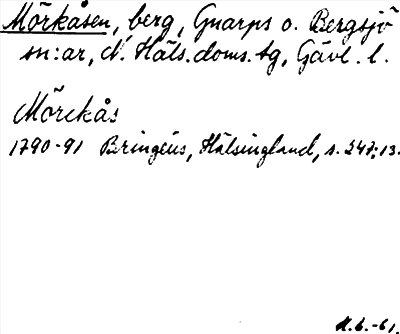 Mörkåsen, berg, Gnarps o. Bergsjö
sn:ar, N. Häls. doms.tg, Gävl. l.
Mörckås
1790-91 Bringéus, Hälsingland, s. 247; 13.
M.b.-61.